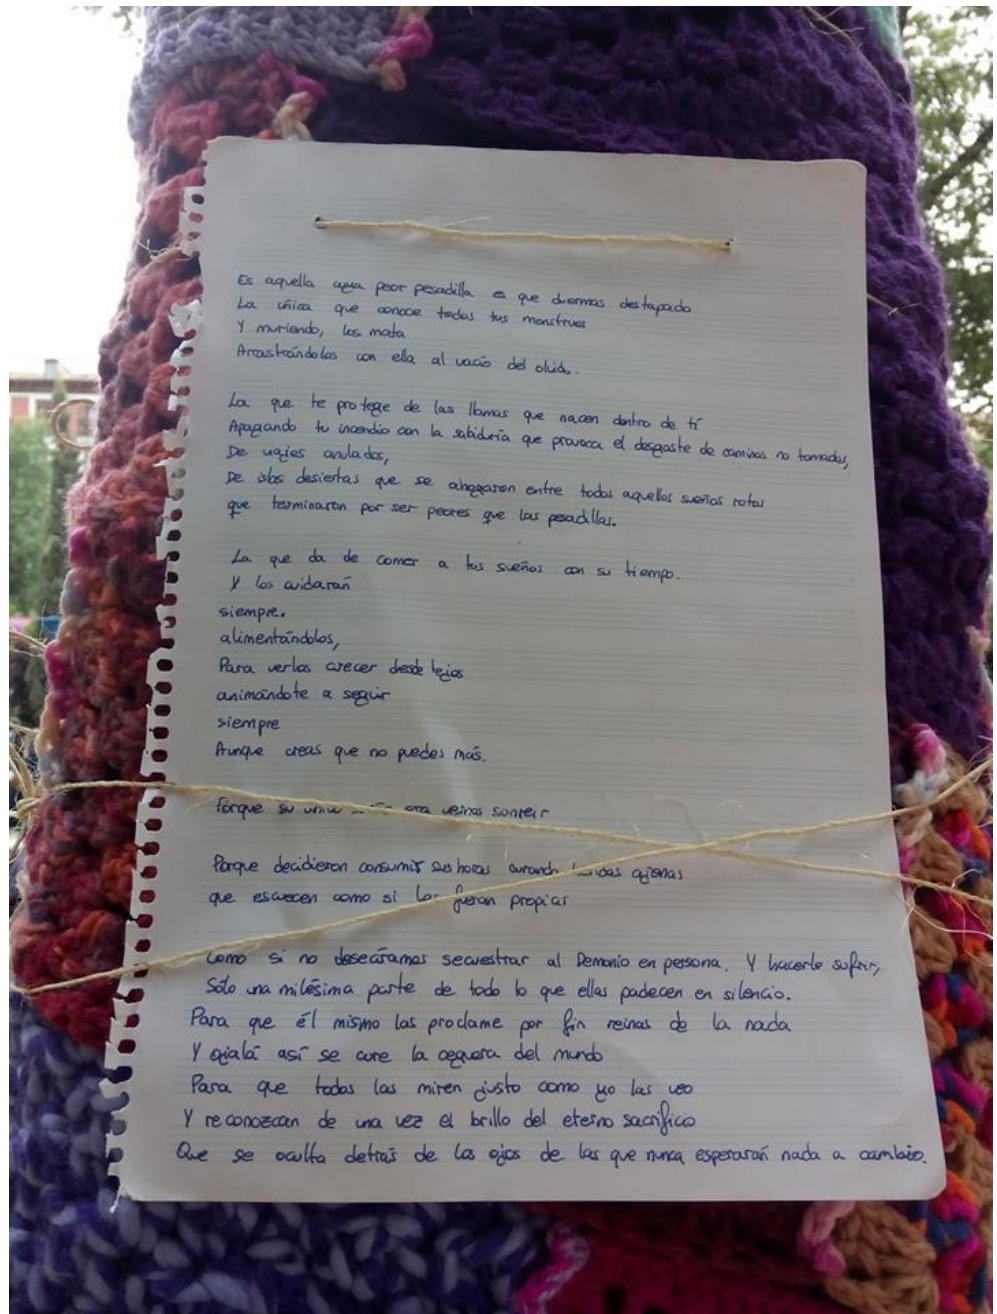 Es aquella cuya peor pesadilla es que duermas destapado
La única que conoce todos tus monstruos
Y muriendo, los mata
Arrastrándolos con ella al vacío del olvido.
La que te protege de las llamas que nacen dentro de tí
Apagando tu incendio con la sabiduría que provoca el desgaste de caminos no tomados,
De viajes anulados,
De islas desiertas que se ahogaron entre todos aquellos sueños rotos
que terminaron por ser peores que las pesadillas.
La que da de comer a tus sueños con su tiempo.
Y los cuidarán
siempre.
alimentándolos,
Para verlos crecer desde lejos
animándote a seguir
siempre
Aunque creas que no puedes más.
Porque su único era vernos sonreír
Porque decidieron consumir sus horas curando ajenas
que escuecen como si las fueran propias
Como si no deseáramos secuestrar al Demonio en persona. Y hacerle sufrir,
Sólo una milésima parte de todo lo que ellas padecen en silencio.
Para que él mismo las proclame por fin reinas de la nada
Y ojalá así se cure la ceguera del mundo
Para que todos las miren justo como yo las veo
Y reconozcan de una vez el brillo del eterno sacrificio
Que se oculta detrás de los ojos de las que nunca esperarán nada a cambio.